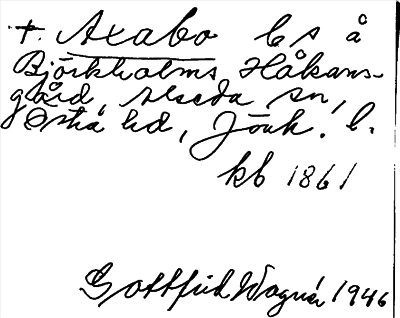 †. Axabo ls å
Björkholms Håkans-
gård, Alseda sn,
Östra hd, Jönk. l.
kb 1861
Gottfrid Wagnér 1946